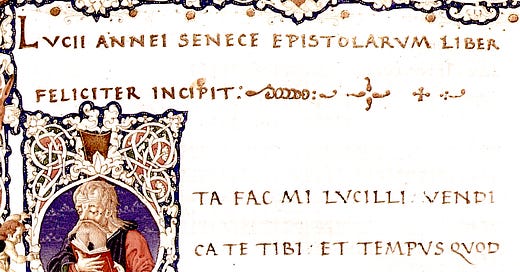 LVCII ANNEI SENECE EPISTOLARVM LIBER
FELICITER INCIPIT:
TA FAC MI LVCILLI: VENDI
CA TE TIBI: ET TEMPVS QVOD